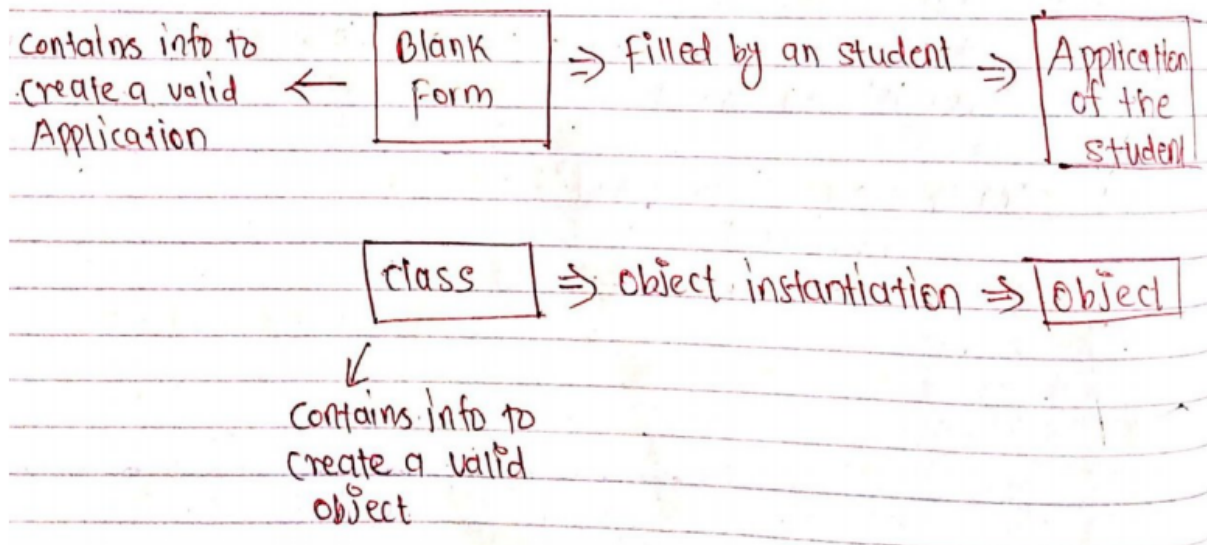 contains info to
create a valid
Application
←
Blank
Form
⇒ Filled by an student ⇒
Application
of the
student
class ⇒ object instantiation ⇒ object
↙
Contains info to
create a valid
object